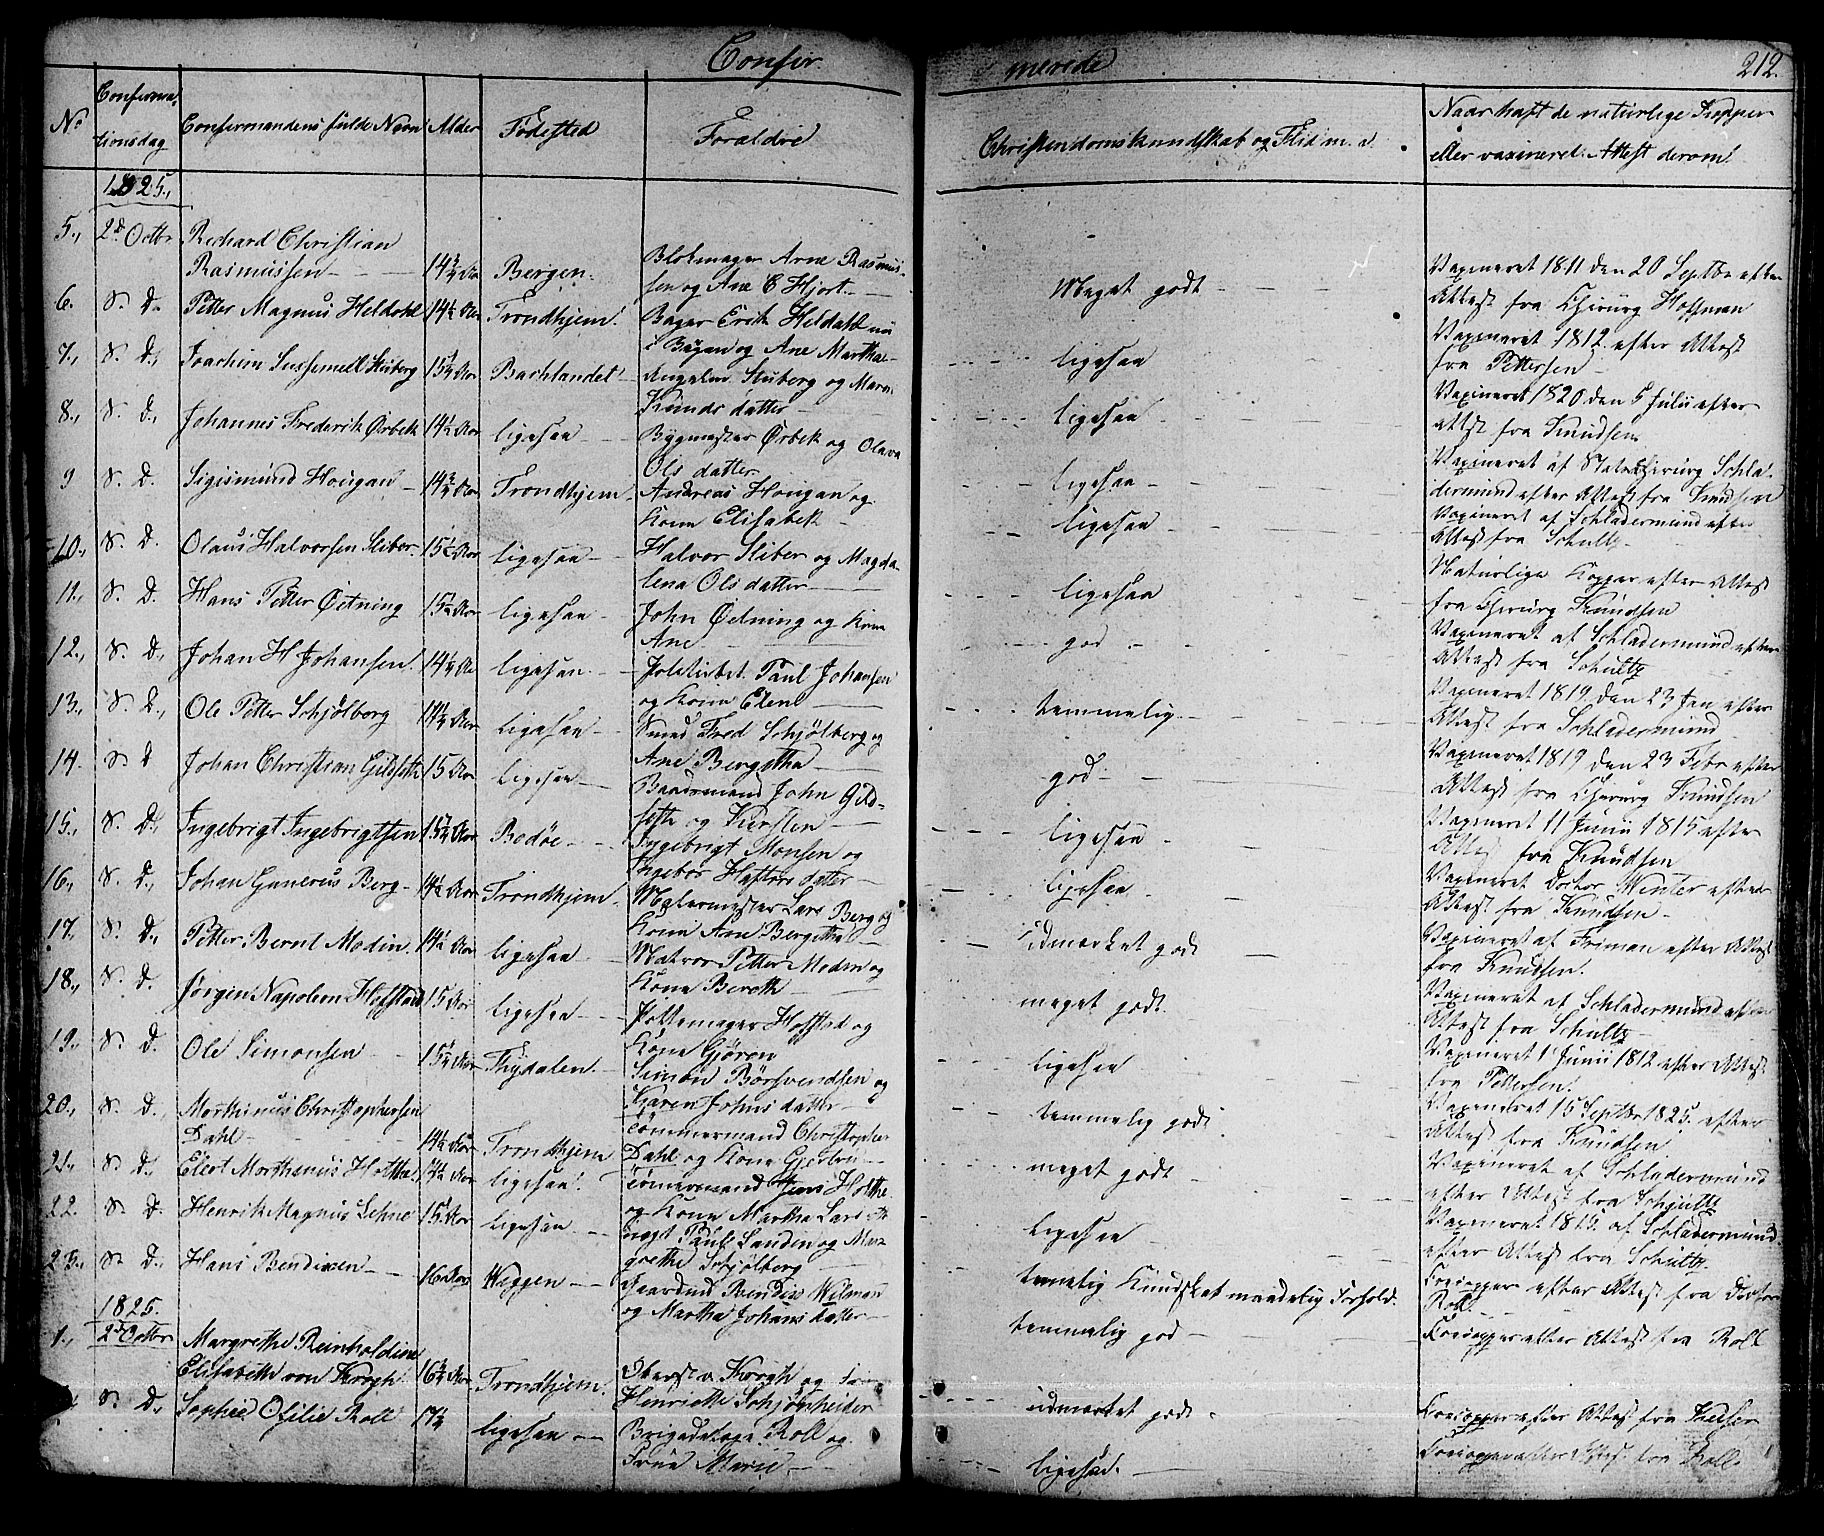 Confir merede 212.
No Confirma,tionsdag Confirmandens fulde Navn Alder Fødested Forældre Christendomskundskab og Flid m. v. Naar haft de naturlige Kopper eller vaxineret. Attest derom.
1825.,
5., 2d Octbr Richard Christian Rasmussen 14 3/4 Aar Bergen. Blokmager Arne Rasmussen og Ane C Hjort. Meget godt Vaxineret 1811 den 20 Septbr efter Attest fra Chirurg Hoffman
6. S. D. Petter Magnus Heldahl Trondhjem. Bager Erik Heldahl nu i Bergen og Ane Martha ligesaa Vaxineret 1812 efter Attest fra Pettersen
7., S. D., Joachim Stüberg Aar Bachlandet Stüberg og Maren Knudsdatter ligesaa Vaxineret 1820 den 5 Julii efter Attest fra Knudsen
8., S. D., Johannes Frederik Ørbek 14 1/2 Aar ligesaa Bygmester Ørbek og Olava Olsdatter ligesaa Vaxineret af Statschirurg Schladermund efter Attest fra Knudsen
9 S. D. Sigismund Hougan 14 3/4 Aar Trondhjem Andreas Hougan og Kone Elisabek ligesaa Vaxineret af Schladermund efter Attest fra Schultz
10., S. D. Olaus Halvorsen Sliber ligesaa Halvor Sliber og Magdalena Olsdatter ligesaa Naturlige Kopper efter Attest fra Chirurg Knudsen
11., S. D. Hans Petter Øetning ligesaa John Øetning og Kone Ane god Vaxineret af Schladermund efter Attest fra Schultz
12., S. D., Johan H Johansen. ligesaa Politiebet. Paul Johansen og Kone Elen temmelig Vaxineret 1819 den 23 Jan efter Attest fra Schladermund
13., S. D., Ole Petter Schjølberg ligesaa Smed Fred Schjølberg og Ane Bergitha god Vaxineret 1819 den 23 Febr efter Attest fra Chirurg Knudsen
14. S. D Johan Christian Gildseth 15 Aar ligesaa Baadsmand John Gildseth og Kirsten ligesaa Vaxineret 11 Junii 1815 efter Attest fra Knudsen
15., S. D., Ingebrigt Ingebrigtsen Bodøe Ingebrigt Monsen og Ingebor Haftorsdatter ligesaa Vaxineret Doctor Winter efter Attest fra Knudsen
16., S. D., Johan Gunerus Berg 14 1/2 Aar Trondhjem. Malermester Lars Berg og Kone Ane Bergitha Udmærket godt Vaxineret af Friman efter Attest fra Knudsen.
17. S. D., Petter Bernt Modin. 14 1/2 Aar ligesaa Matros Petter Modin og Kone Bereth meget godt. Vaxineret af Schladermund efter Attest fra Schultz
18., S. D. Jørgen Napoleon Hofstad 15 Aar ligesaa Pottemager Hofstad og Kone Gjøron ligesaa Vaxineret 1 Junii 1812 efter Attest fra Pettersen.
19. S. D. Ole Simonsen Aar Thydalen. Simon Børsvendsen og Karen Johnsdatter temmelig godt. Vaxineret 15 Septbr 1825. efter Attest fra Knudsen
20., S. D. Morthinus Christophersen Dahl 14 1/2 Aar Trondhjem Tømmermand Christopher Dahl og Kone Gjertru meget godt Vaxineret af Schladermund efter Attest fra Schultz
21., S. D., Eleot Morthenus Holthe Aar ligesaa. Tømmermand Jens Holthe og Kone Martha Larsdtr ligesaa Vaxineret 1815. af Schladermund efter Attest fra Schultz.
22. S. D. Henrik Magnus Lehne 15 Aar ligesaa Paul Sanden og Margrethe Schjølberg temelig Kundskab maadelig Forhold. Coecopper efter Attest fra Doctor Roll
23., S. D., Hans Bendixen 16 Aar Wiggen Gaardmd Bendix Wilman og Martha Johansdatter temmelig god Coecopper efter Attest fra Roll
1825.
1., 2d Octbr Margrethe Reinholdine Elisabeth von Krogh Aar Trondhjem. Oberst v Krogh og Henriette Schjønheider udmærket godt Coecopper efter Attest fra
S. D., Sophie Ofilie Roll ligesaa Brigadelæge Roll og Frue Marie ligesaa. Coecopper efter Attest fra Roll.